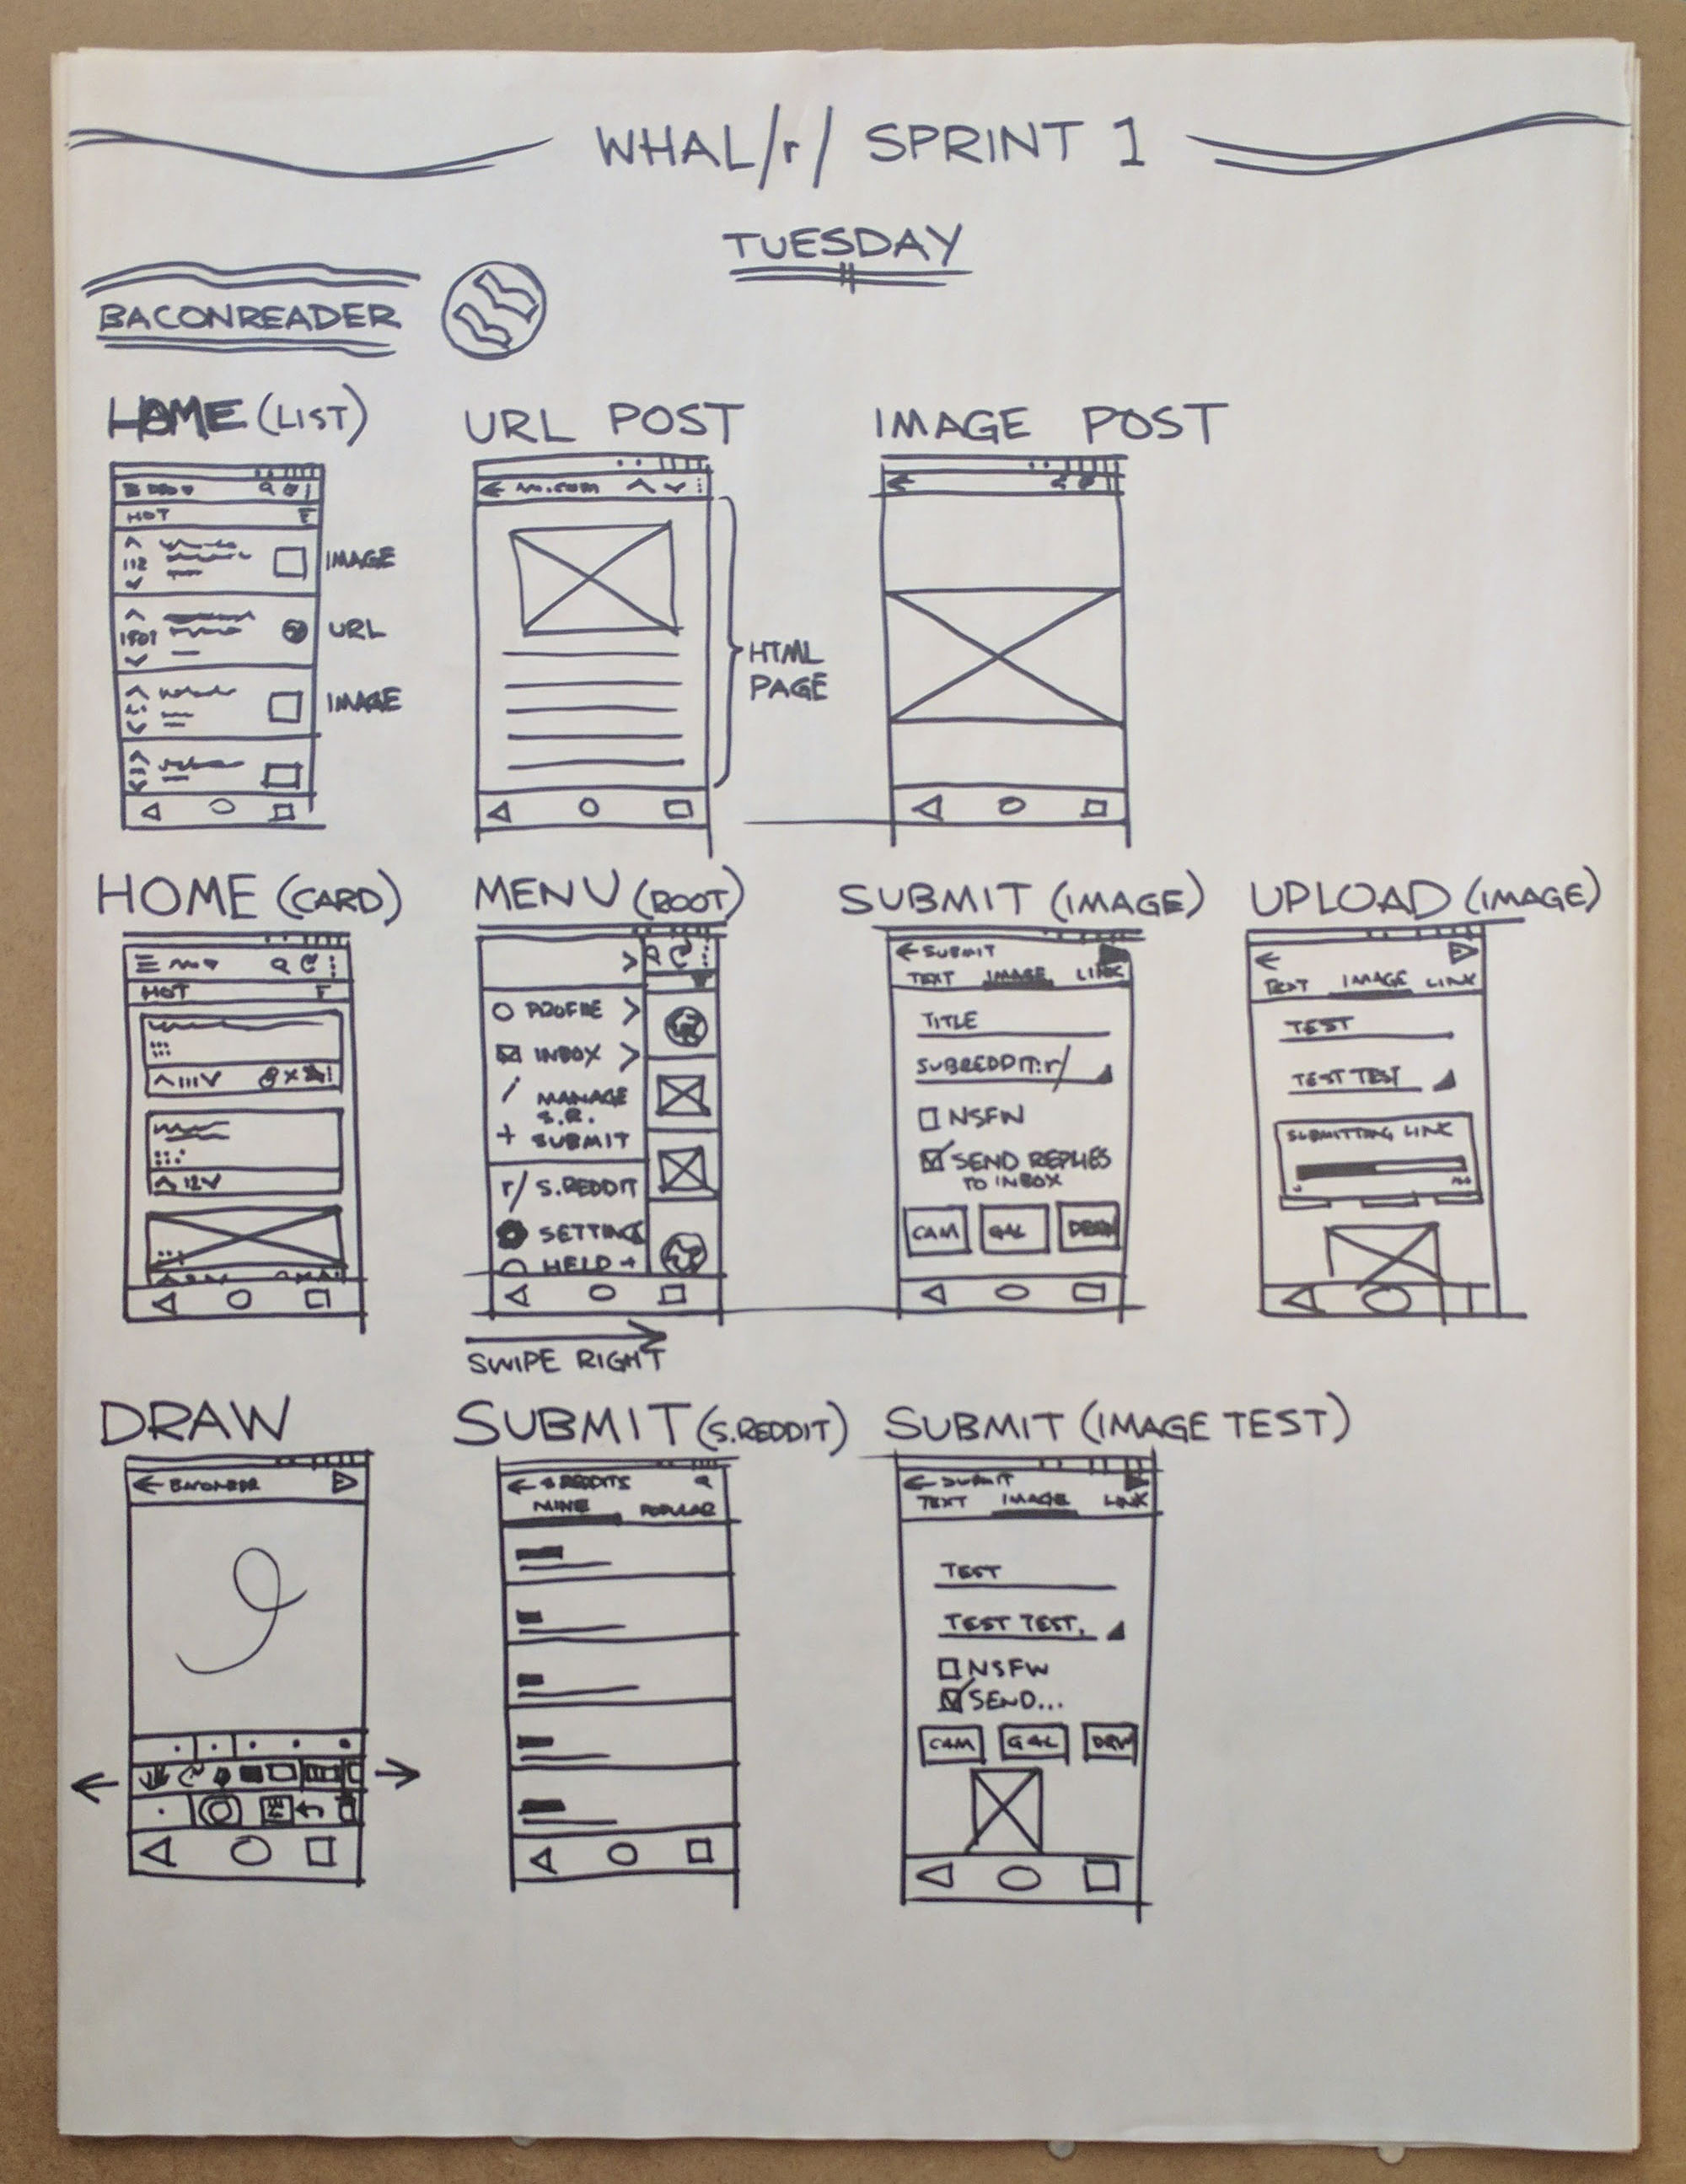 WHAL/r/ SPRINT 1
TUESDAY
BACONREADER
HOME (LIST)
HOT
112
IMAGE
URL
IMAGE
URL POST
.com
HTML
PAGE
IMAGE POST
HOME (CARD)
HOT
12
MENU (ROOT)
PROFILE
INBOX
MANAGE
S.R.
+ SUBMIT
r/ S.REDDIT
SETTING
HELP +
SWIPE RIGHT
SUBMIT (IMAGE)
SUBMIT
TEXT IMAGE LINK
TITLE
SUBREDDIT:r/
NSFW
SEND REPLIES
TO INBOX
CAM GAL DRAW
UPLOAD (IMAGE)
TEXT IMAGE LINK
TEST
TEST TEST
SUBMITTING LINK
DRAW
SUBMIT (S.REDDIT)
S REDDITS
MINE POPULAR
SUBMIT (IMAGE TEST)
SUBMIT
TEXT IMAGE LINK
TEST
TEST TEST.
NSFW
SEND...
CAM GAL DRW